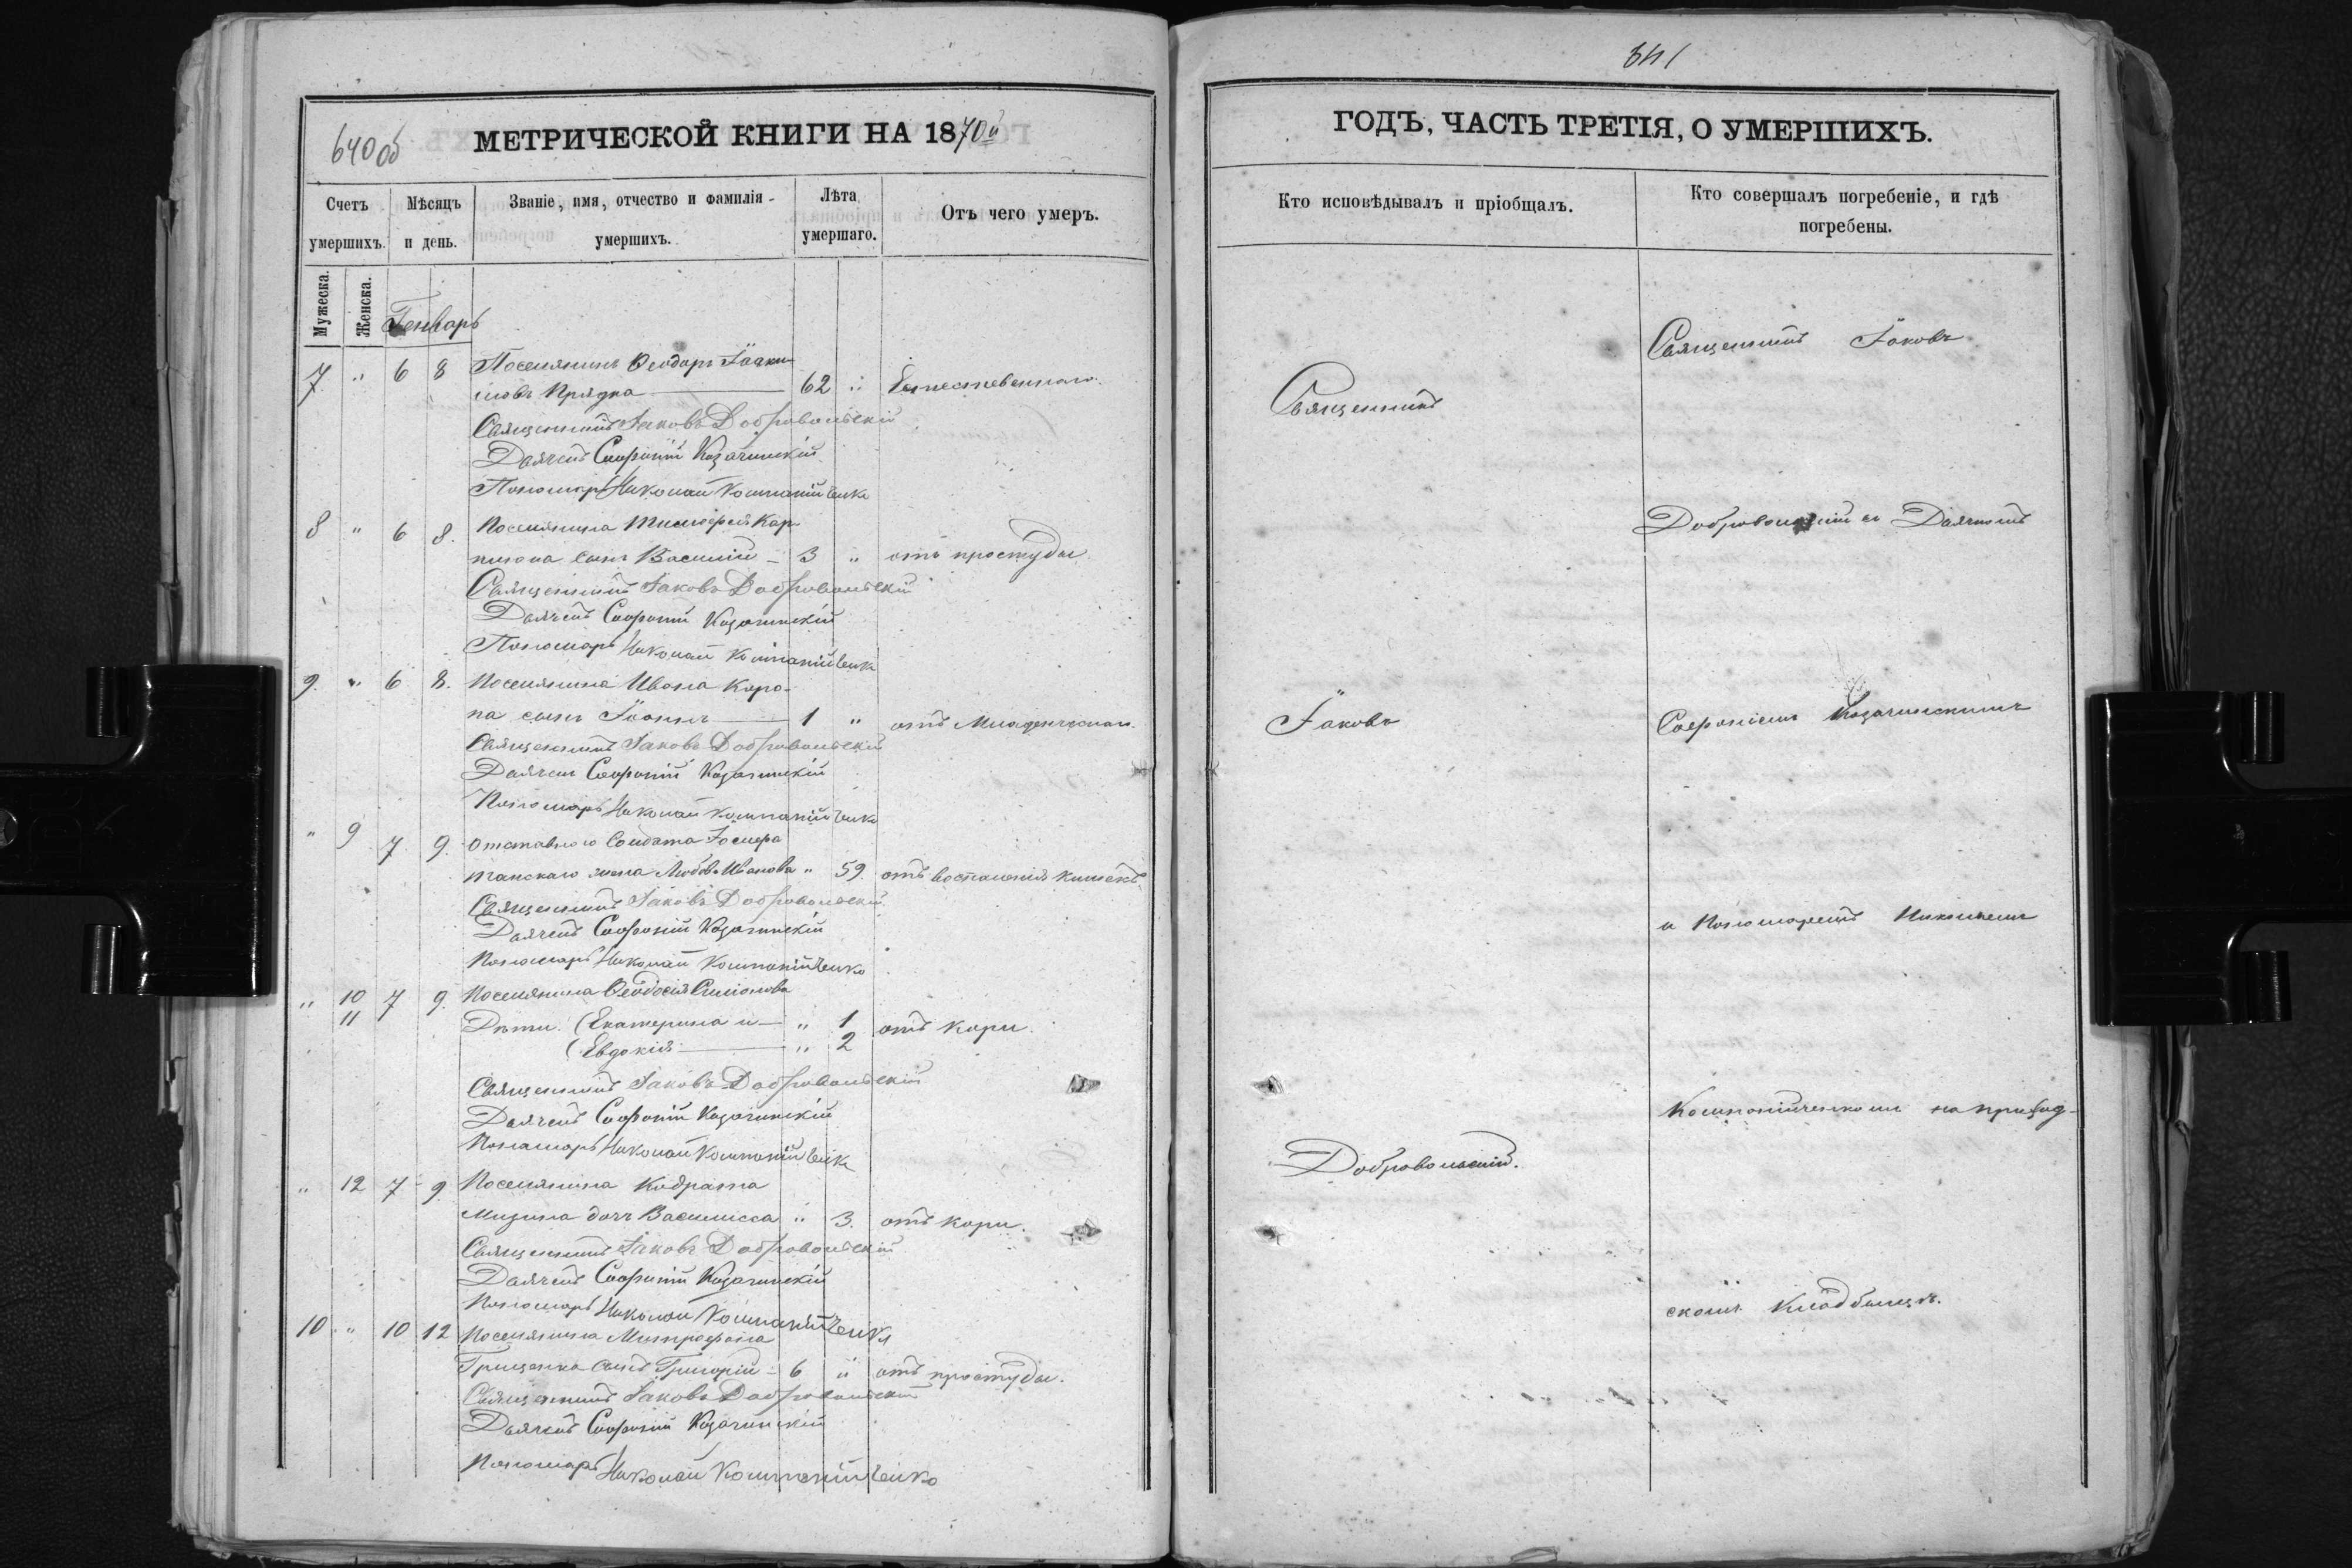 640 об
МЕТРИЧЕСКОЙ КНИГИ НА 1870й
Счетъ умершихъ.
Мѣсяцъ и день.
Званіе, имя, отчество и фамилія умершихъ.
Лѣта умершаго.
Отъ чего умеръ.
Мужеска.
Женска.
Генварь
7 " 6 8 Поселянинъ Ѳеодоръ Іоаки-
мовъ Прядка 62 " Естественного.
Священникъ Іаковъ Добровольскій
Дьячекъ Софроній Козачинскій
Пономарь Николай Компанійченко
8 " 6 8. Поселянина Тимоѳея Кар-
пиона сынъ Василій 3 " отъ простуды
Священникъ Іаковъ Добровольскій
Дьячекъ Софроній Козачинскій
Пономарь Николай Компанійченко
9. " 6 8. Поселянина Ивана Коро-
па сынъ Іоаннъ 1 " отъ Младенческаго
Священникъ Іаковъ Добровольскій
Дьячекъ Софроній Козачинскій
Пономарь Николай Компанійченко
" 9 7 9. Отставного Солдата
жена Любовь Иванова " 59. отъ воспаленія кишекъ.
Священникъ Іаковъ Добровольскій
Дьячекъ Софроній Козачинскій
Пономарь Николай Компанійченко
" 10 7 9. Поселянина Ѳеодосія Симонова
11 Дѣти: (Екатерина и " 1 отъ кори.
(Евдокія " 2
Священникъ Іаковъ Добровольскій
Дьячекъ Софроній Козачинскій
Пономарь Николай Компанійченко
" 12 7 9 Поселянина Кодрата
Мизина дочь Василисса " 3. отъ кори.
Священникъ Іаковъ Добровольскій
Дьячекъ Софроній Козачинскій
Пономарь Николай Компанійченко
10 " 10 12 Поселянина Митрофана
Гриценка сынъ Григорій 6 " отъ простуды.
Священникъ Іаковъ Добровольскій
Дьячекъ Софроній Козачинскій
Пономарь Николай Компанійченко
341
ГОДЪ, ЧАСТЬ ТРЕТІЯ, О УМЕРШИХЪ.
Кто исповѣдывалъ и пріобщалъ.
Кто совершалъ погребеніе, и гдѣ погребены.
Священникъ Іаковъ
Священникъ
Добровольскій съ Дьячкомъ
Іаковъ
Софроніемъ Козачинскимъ
и Пономаремъ Николаемъ
Компанійченкомъ на приход-
Добровольскій.
скомъ кладбищѣ.